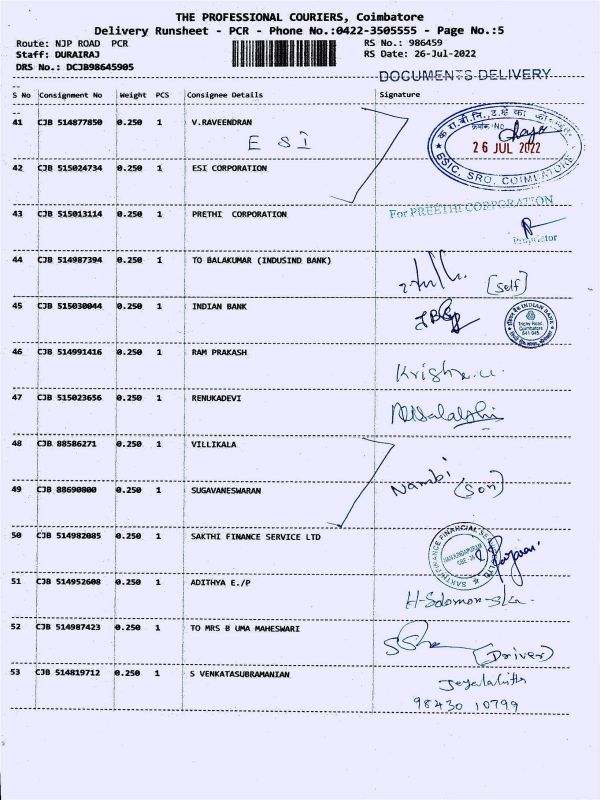 THE PROFESSIONAL COURIERS, Coimbatore
Delivery Runsheet - PCR - Phone No.:0422-3505555 - Page No.:5
Route: NJP ROAD PCR RS No.: 986459
Staff: DURAIRAJ RS Date: 26-Jul-2022
DRS No.: DCJB98645905
DOCUMENTS DELIVERY
S No Consignment No Weight PCS Consignee Details Signature
41 CJB 514877850 0.250 1 V.RAVEENDRAN
E S I
26 JUL 2022
ESIC, SRO, COIMBATORE
42 CJB 515024734 0.250 1 ESI CORPORATION
43 CJB 515013114 0.250 1 PRETHI CORPORATION
For PREETHI CORPORATION
Proprietor
44 CJB 514987394 0.250 1 TO BALAKUMAR (INDUSIND BANK)
(self)
45 CJB 515030044 0.250 1 INDIAN BANK
INDIAN BANK
Trichy Road,
Coimbatore
641 045
46 CJB 514991416 0.250 1 RAM PRAKASH
47 CJB 515023656 0.250 1 RENUKADEVI
48 CJB 88586271 0.250 1 VILLIKALA
49 CJB 88690800 0.250 1 SUGAVANESWARAN
Nambi (Son)
50 CJB 514982085 0.250 1 SAKTHI FINANCE SERVICE LTD
51 CJB 514952608 0.250 1 ADITHYA E./P
52 CJB 514987423 0.250 1 TO MRS B UMA MAHESWARI
(Driver)
53 CJB 514819712 0.250 1 S VENKATASUBRAMANIAN
Jeyalalitha
98430 10799